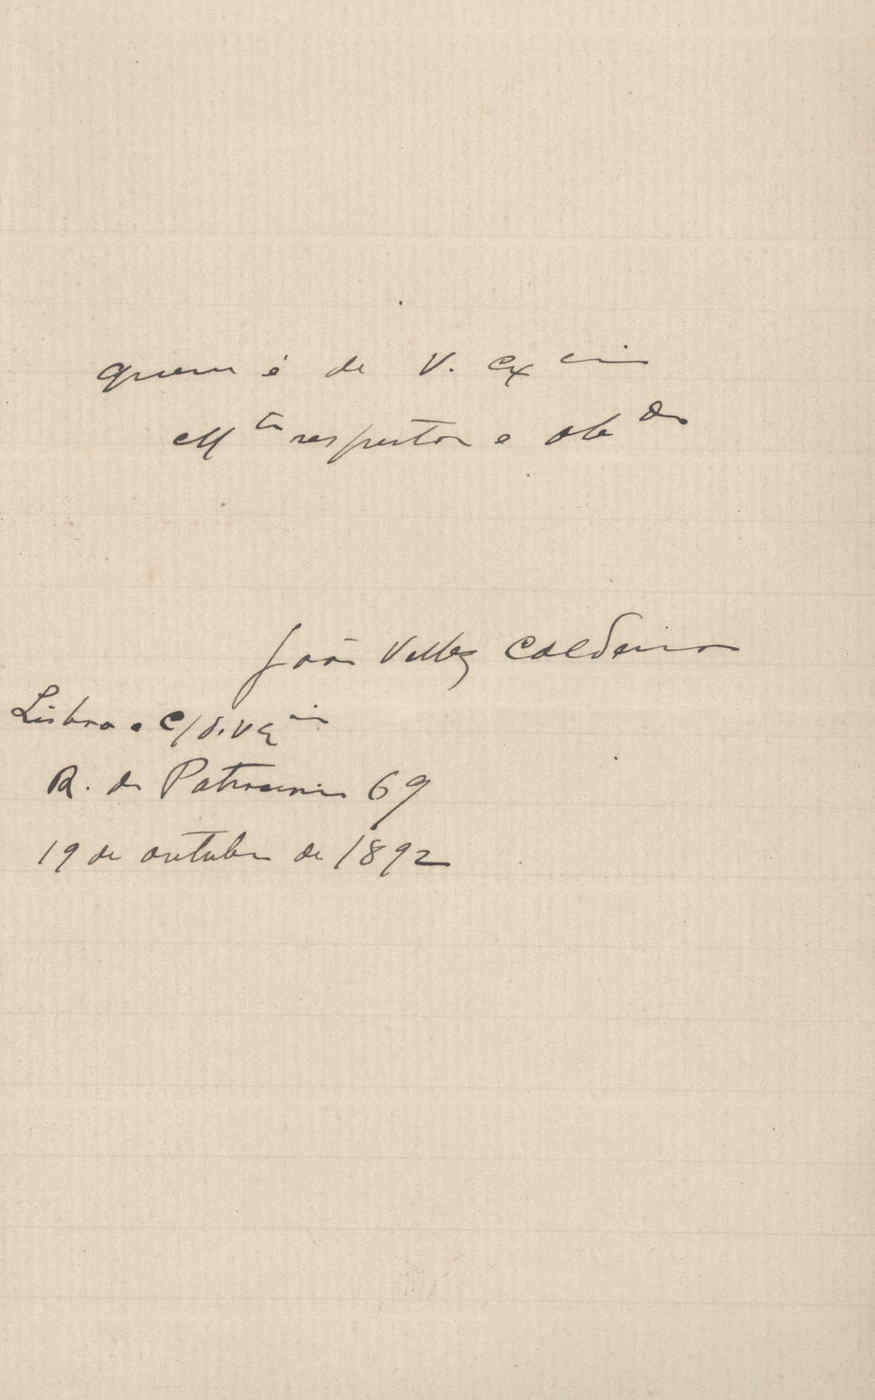 quem é de V. Ex cia
Mto respeitor e obdo
João Vellez Caldeira
Lisboa e C/ d. V Exia
R. do Patrocinio 69
19 de outubro de 1892